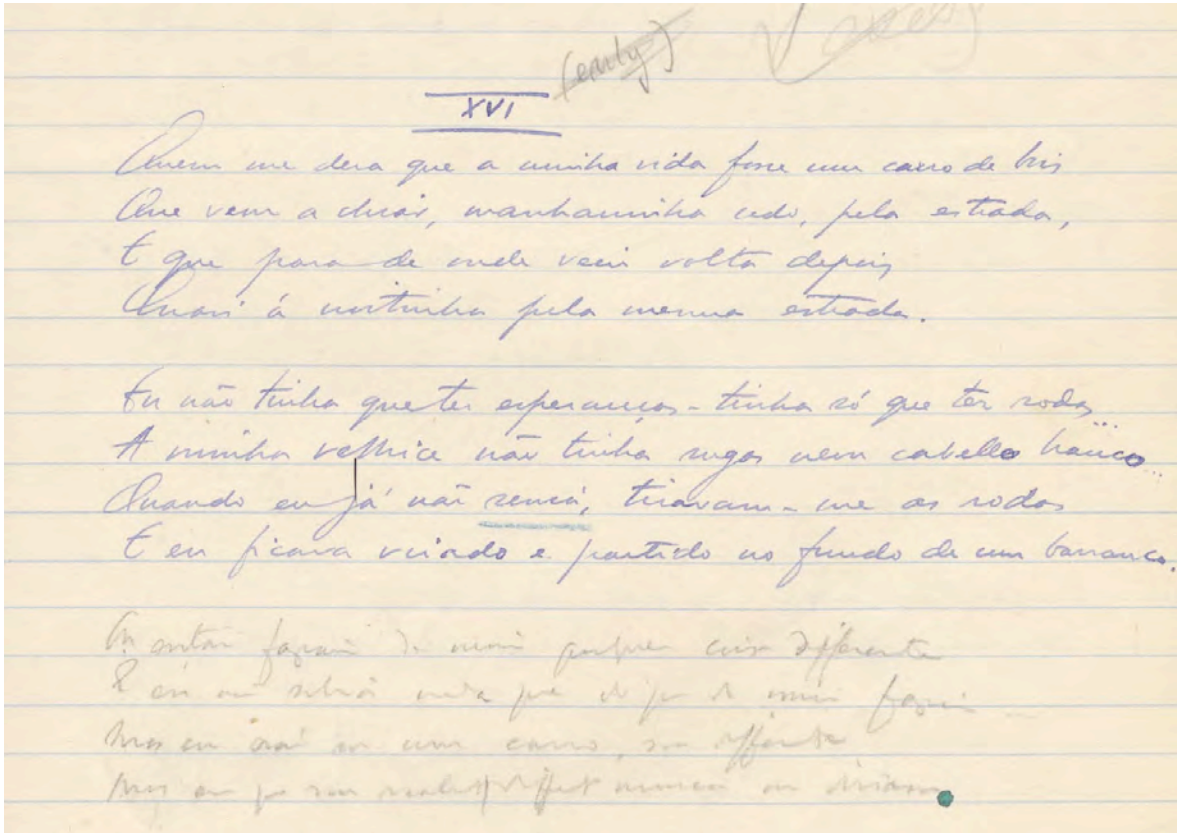 (early)
XVI
Quem me dera que a minha vida fosse um carro de bois
Que vem a chiar, manhaninha cedo, pela estrada,
E que para de onde veio volta depois
Quasi á noitinha pela mesma estrada.
Eu não tinha que ter esperanças - tinha só que ter rodas...
A minha velhice não tinha rugas nem cabello branco...
Quando eu já não servia, tiravam-me as rodas
E eu ficava virado e partido no fundo de um barranco.
Ou então faziam de mim qualquer coisa differente
E eu não sabia nada que de que de mim faziam...
Mas eu não sou um carro, sou differente
Mas em que sou realmente differente nunca me diriam